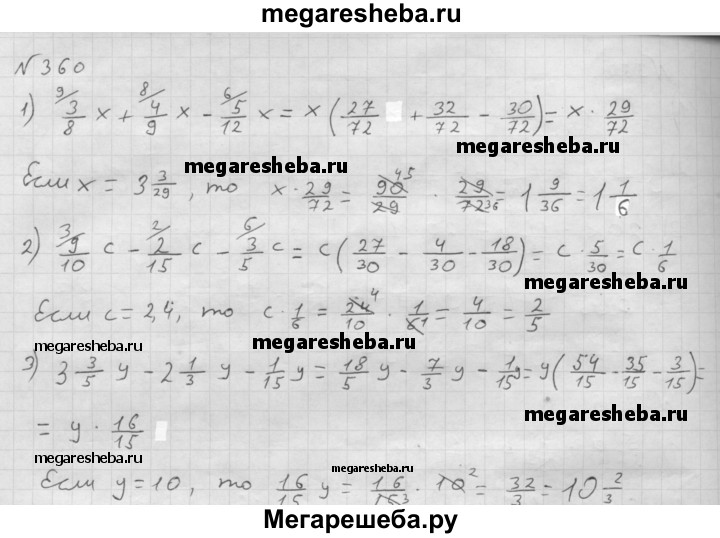 megaresheba.ru
№ 360
1) ⁹/ 3/8 x + ⁸/ 4/9 x − ⁶/ 5/12 x = x (27/72 + 32/72 − 30/72) = x · 29/72
megaresheba.ru
megaresheba.ru
Если x = 3 3/29, то x · 29/72 = 90/29 · 29/72 = 1 9/36 = 1 1/6
45
36
megaresheba.ru
2) ³/ 9/10 c − ²/ 2/15 c − ⁶/ 3/5 c = c (27/30 − 4/30 − 18/30) = c · 5/30 = c · 1/6
megaresheba.ru
Если c = 2,4, то c · 1/6 = 24/10 · 1/61 = 4/10 = 2/5
4
megaresheba.ru
megaresheba.ru
3) 3 3/5 y − 2 1/3 y − 1/15 y = 18/5 y − 7/3 y − 1/15 y = y (54/15 − 35/15 − 3/15) =
megaresheba.ru
= y · 16/15
megaresheba.ru
megaresheba.ru
Если y = 10, то 16/15 y = 16/15 3 · 10 2 = 32/3 = 10 2/3
Мегарешеба.ру